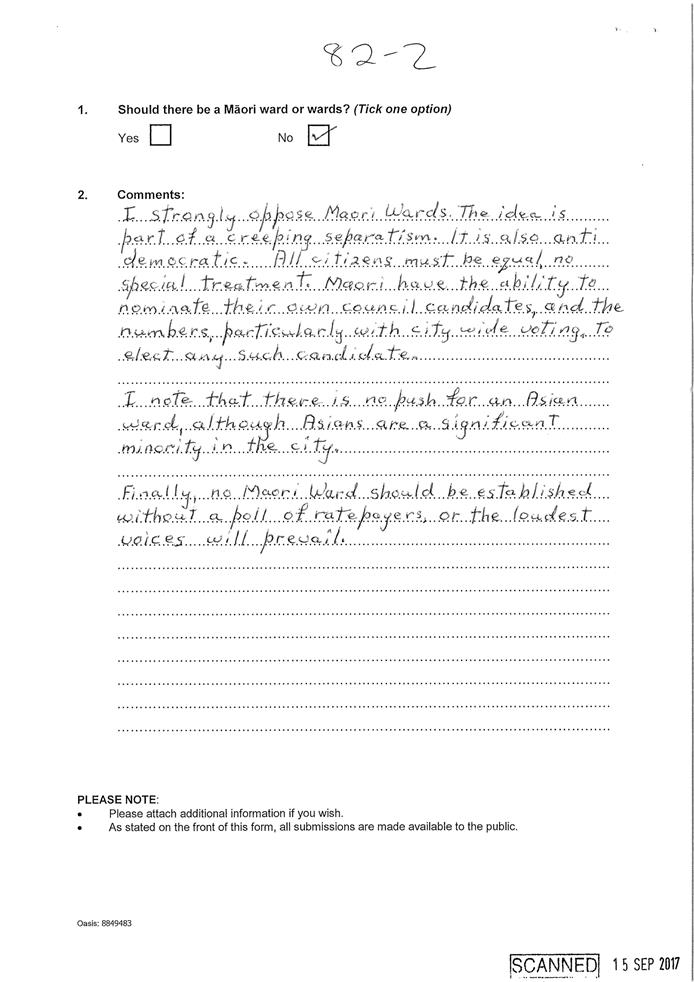 82-2
1. Should there be a Māori ward or wards? (Tick one option)
Yes No
2. Comments:
I strongly oppose Maori Wards. The idea is
part of a creeping separatism. It is also anti
democratic. All citizens must be equal, no
special treatment. Maori have the ability to
nominate their own council candidates, and the
numbers, particularly with city wide voting, to
elect any such candidate.
I note that there is no push for an Asian
ward, although Asians are a significant
minority in the city.
Finally, no Maori Ward should be established
without a poll of ratepayers, or the loudest
voices will prevail.
PLEASE NOTE:
• Please attach additional information if you wish.
• As stated on the front of this form, all submissions are made available to the public.
Oasis: 8849483
SCANNED 15 SEP 2017